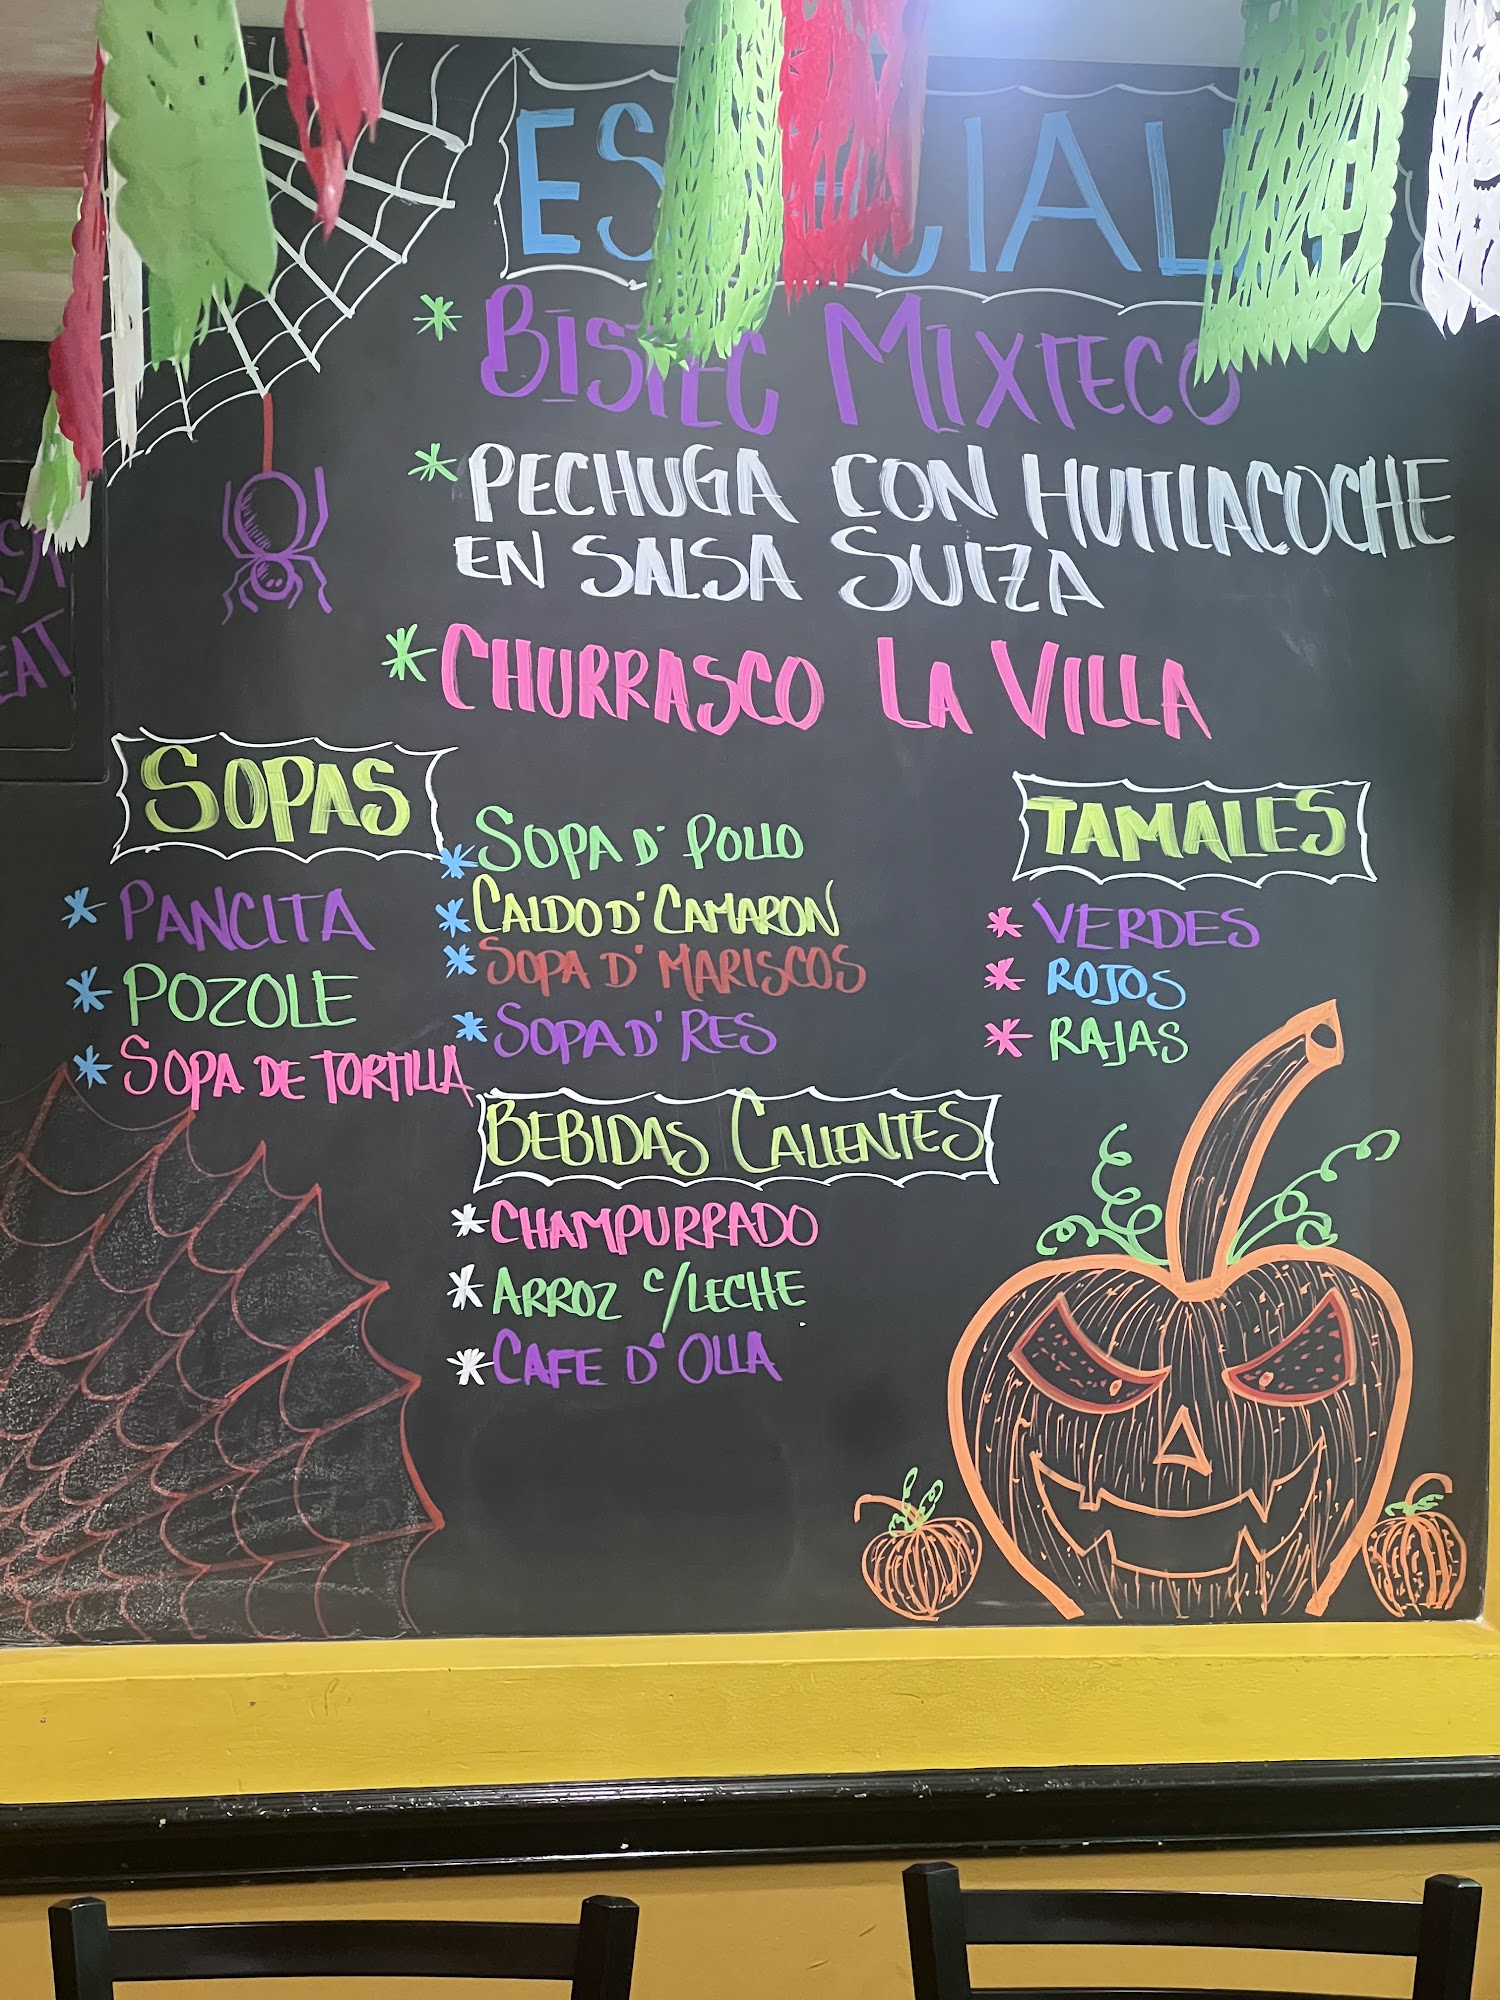 ESPECIALES
* BISTEC MIXTECO
* PECHUGA CON HUITLACOCHE
EN SALSA SUIZA
* CHURRASCO LA VILLA
SOPAS
* PANCITA
* POZOLE
* SOPA DE TORTILLA
* SOPA D' POLLO
* CALDO D' CAMARON
* SOPA D' MARISCOS
* SOPA D' RES
TAMALES
* VERDES
* ROJOS
* RAJAS
BEBIDAS CALIENTES
* CHAMPURRADO
* ARROZ C/LECHE
* CAFE D' OLLA